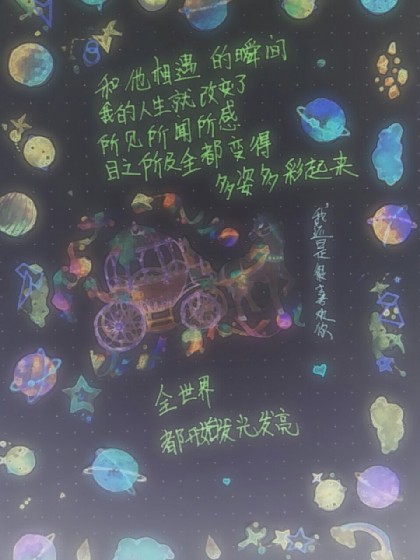 和他相遇的瞬间
我的人生就改变了
所见所闻所感
目之所及全都变得
多姿多彩起来
我还是很喜欢你
全世界
都开始发光发亮